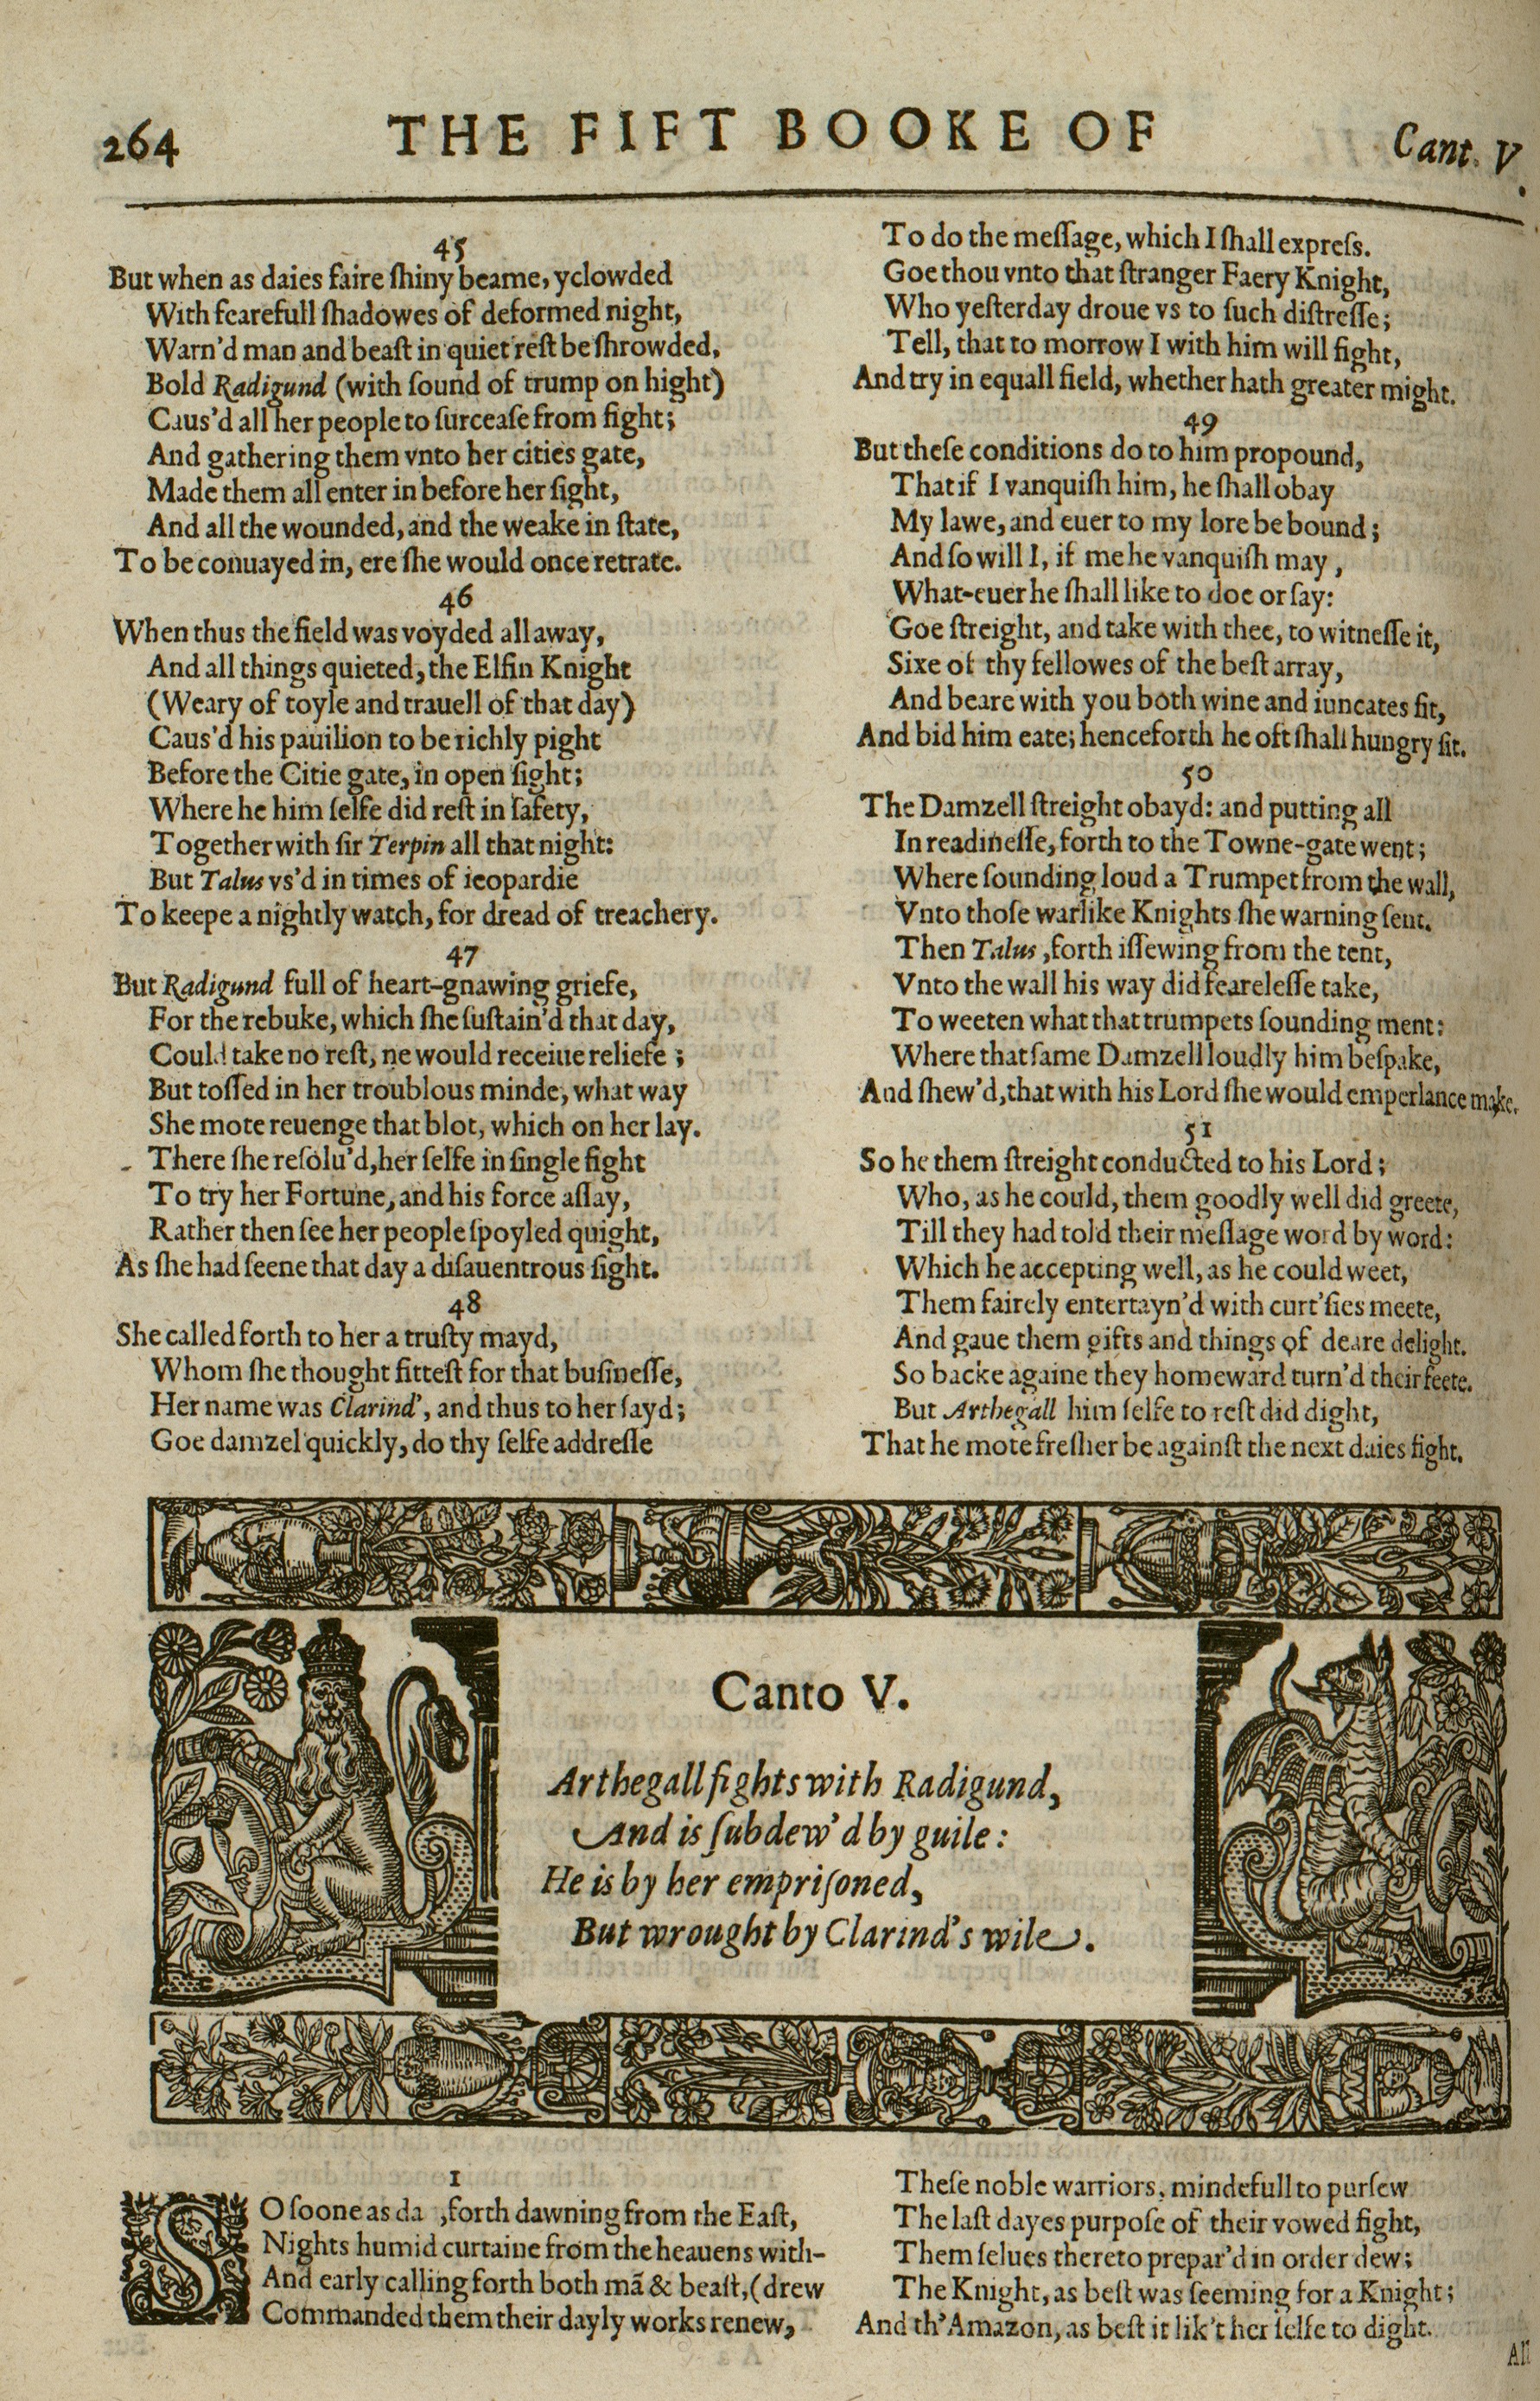 264
THE FIFT BOOKE OF
Cant. V.
45
But when as daies faire ſhiny beame, yclowded
With fearefull ſhadowes of deformed night,
Warn'd man and beaſt in quiet reſt be ſhrowded,
Bold Radigund (with ſound of trump on hight)
Caus'd all her people to ſurceaſe from fight;
And gathering them vnto her cities gate,
Made them all enter in before her ſight,
And all the wounded, and the weake in ſtate,
To be conuayed in, ere ſhe would once retrate.
46
When thus the field was voyded all away,
And all things quieted, the Elfin Knight
(Weary of toyle and trauell of that day)
Caus'd his pauilion to be richly pight
Before the Citie gate, in open ſight;
Where he him ſelfe did reſt in ſafety,
Together with ſir Terpin all that night:
But Talus vs'd in times of ieopardie
To keepe a nightly watch, for dread of treachery.
47
But Radigund full of heart-gnawing griefe,
For the rebuke, which ſhe ſuſtain'd that day,
Could take no reſt, ne would receiue reliefe;
But toſſed in her troublous minde, what way
She mote reuenge that blot, which on her lay.
There ſhe reſolu'd, her ſelfe in ſingle fight
To try her Fortune, and his force aſſay,
Rather then ſee her people ſpoyled quight,
As ſhe had ſeene that day a diſauentrous ſight.
48
She called forth to her a truſty mayd,
Whom ſhe thought fitteſt for that buſineſſe,
Her name was Clarind', and thus to her ſayd;
Goe damzel quickly, do thy ſelfe addreſſe
To do the meſſage, which I ſhall expreſs.
Goe thou vnto that ſtranger Faery Knight,
Who yeſterday droue vs to ſuch diſtreſſe;
Tell, that to morrow I with him will fight,
And try in equall field, whether hath greater might.
49
But theſe conditions do to him propound,
That if I vanquiſh him, he ſhall obay
My lawe, and euer to my lore be bound;
And ſo will I, if me he vanquiſh may,
What-euer he ſhall like to doe or ſay:
Goe ſtreight, and take with thee, to witneſſe it,
Sixe of thy fellowes of the beſt array,
And beare with you both wine and iuncates fit,
And bid him eate; henceforth he oft ſhall hungry ſit.
50
The Damzell ſtreight obayd: and putting all
In readineſſe, forth to the Towne-gate went;
Where ſounding loud a Trumpet from the wall,
Vnto thoſe warlike Knights ſhe warning ſent.
Then Talus, forth iſſewing from the tent,
Vnto the wall his way did feareleſſe take,
To weeten what that trumpets ſounding ment:
Where that ſame Damzell loudly him beſpake,
And ſhew'd, that with his Lord ſhe would emperlance make.
51
So he them ſtreight conducted to his Lord;
Who, as he could, them goodly well did greete,
Till they had told their meſſage word by word:
Which he accepting well, as he could weet,
Them fairely entertayn'd with curt'ſies meete,
And gaue them gifts and things of deare delight.
So backe againe they homeward turn'd their feete.
But Arthegall him ſelfe to reſt did dight,
That he mote freſher be againſt the next daies fight.
Canto V.
Arthegall fights with Radigund,
And is ſubdew'd by guile:
He is by her empriſoned,
But wrought by Clarind's wile.
1
SO ſoone as da , forth dawning from the Eaſt,
Nights humid curtaine from the heauens with-
And early calling forth both mā & beaſt, (drew
Commanded them their dayly works renew,
Theſe noble warriors, mindefull to purſew
The laſt dayes purpoſe of their vowed fight,
Them ſelues thereto prepar'd in order dew;
The Knight, as beſt was ſeeming for a Knight;
And th'Amazon, as beſt it lik't her ſelfe to dight.
All